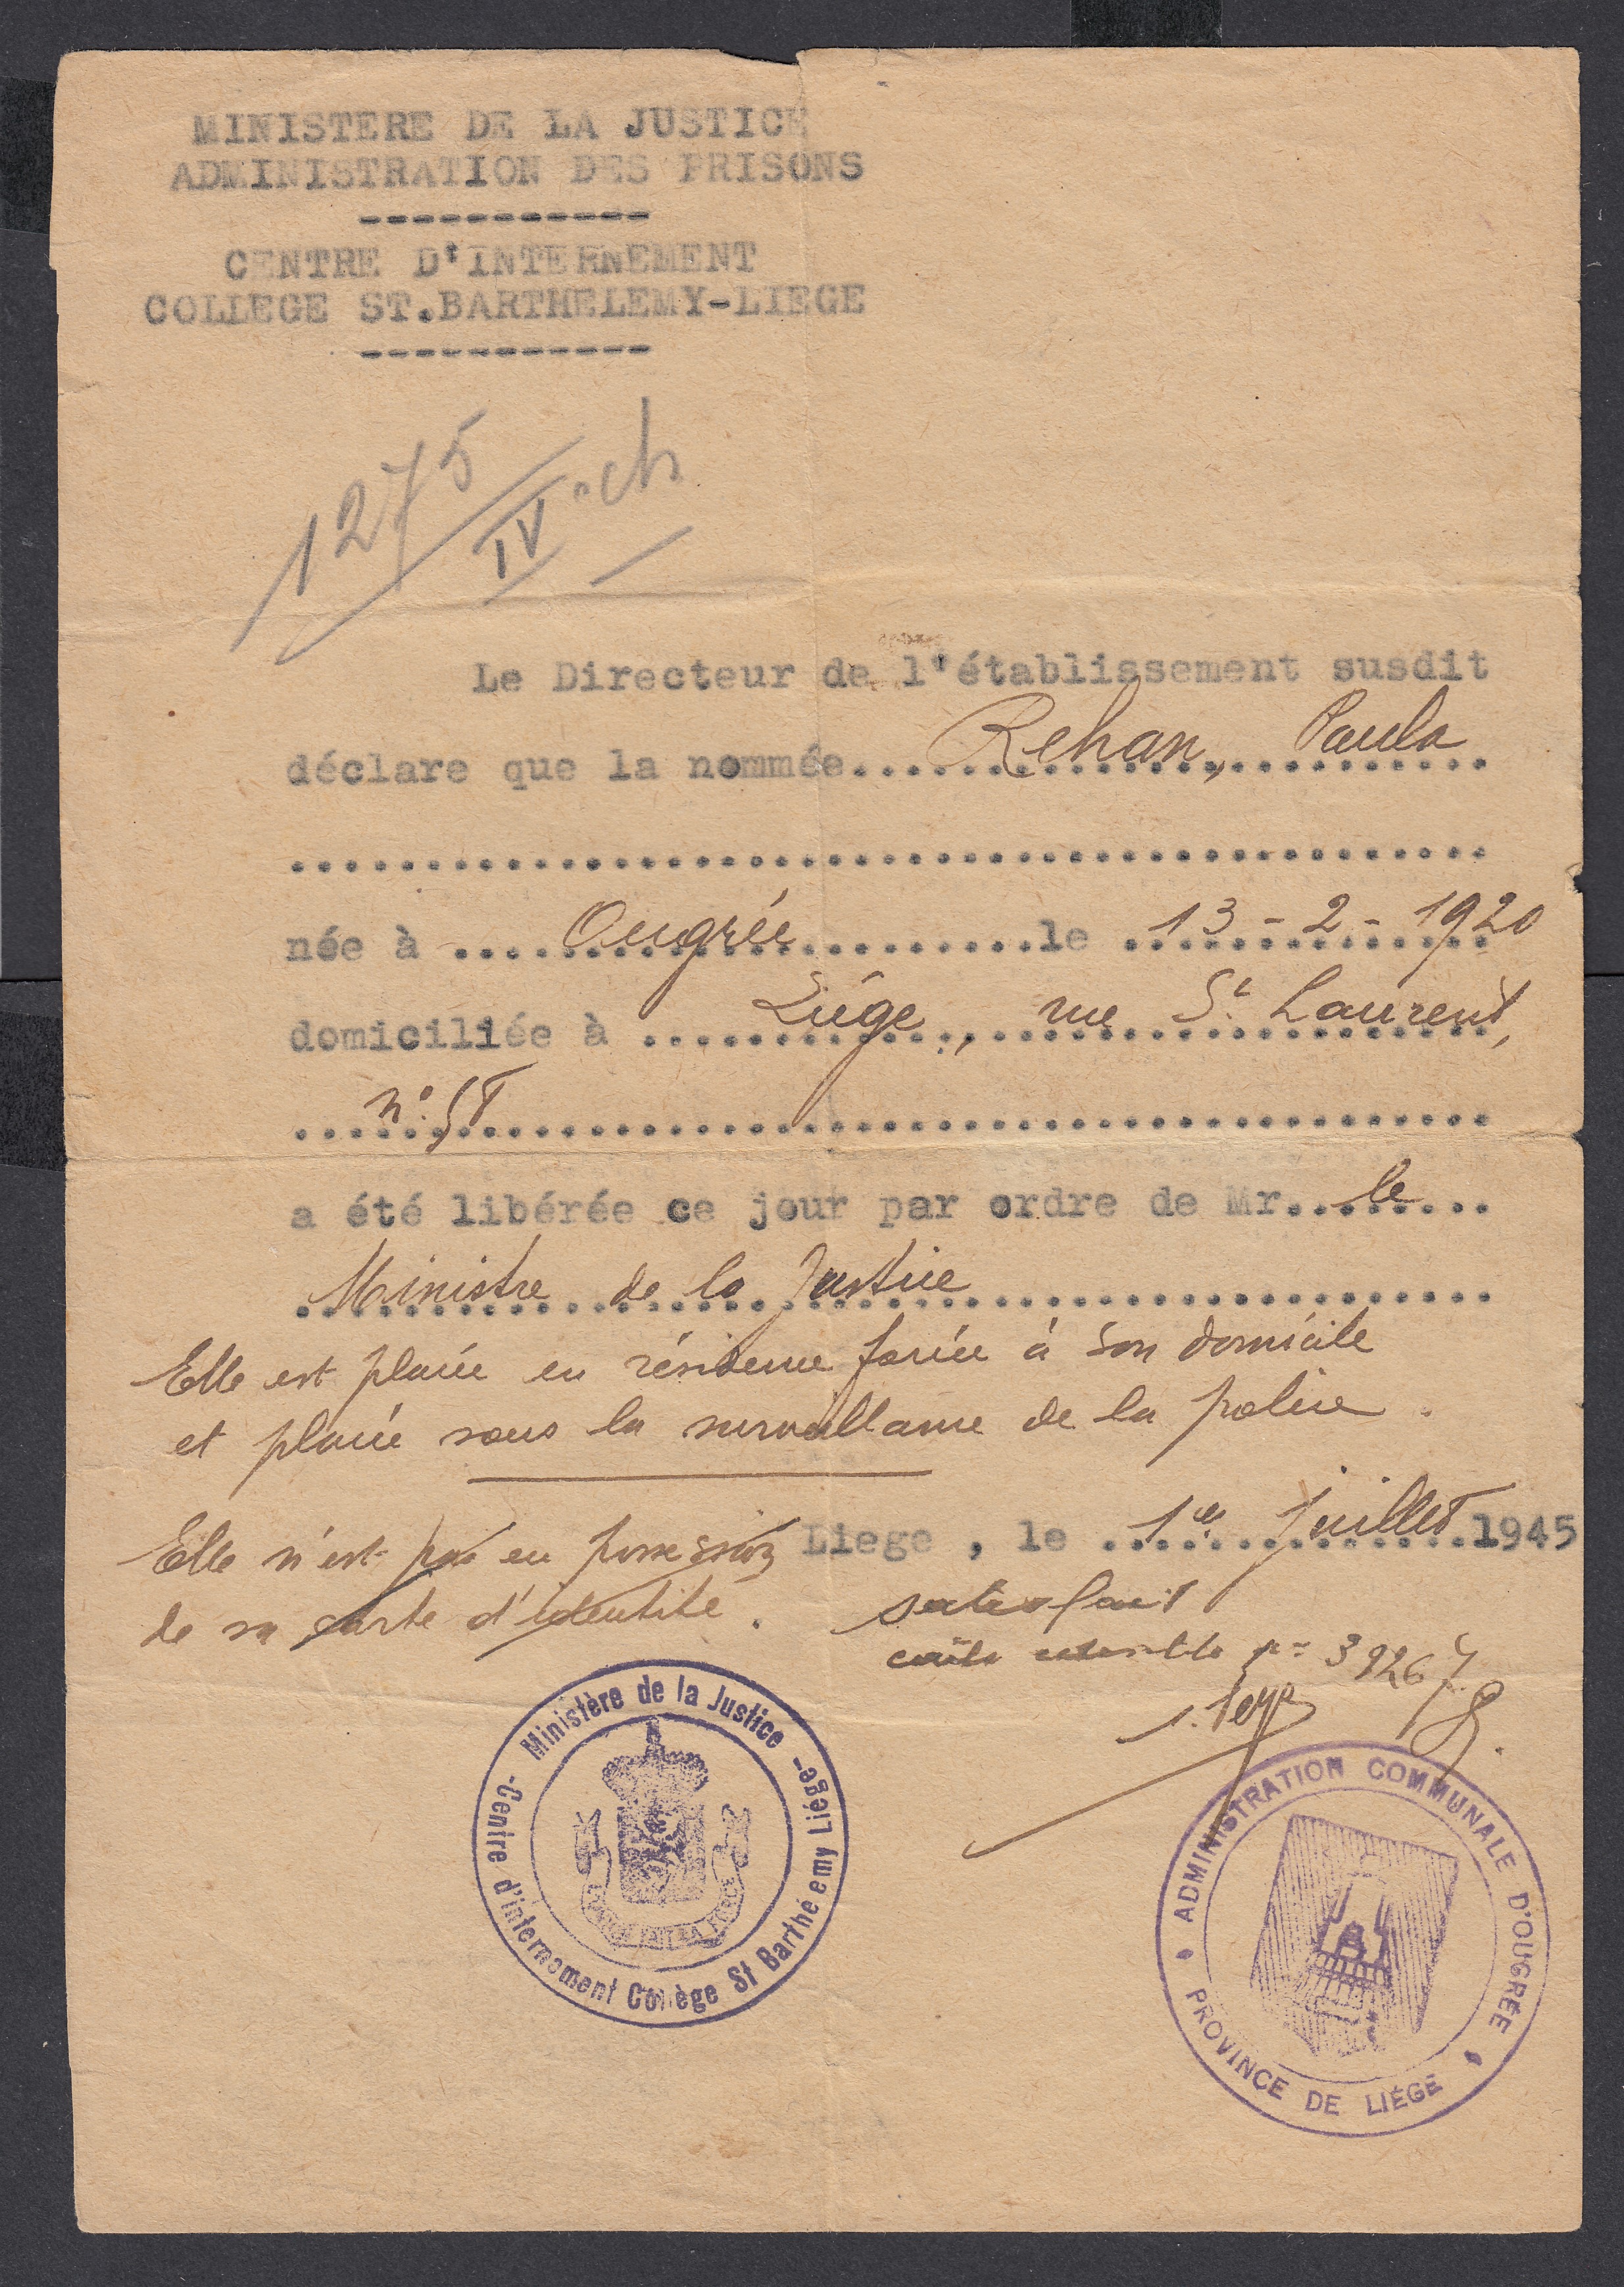 MINISTERE DE LA JUSTICE
ADMINISTRATION DES PRISONS
-----------
CENTRE D'INTERNEMENT
COLLEGE ST.BARTHELEMY-LIEGE
-----------
1275/IV.ch
Le Directeur de l'établissement susdit
déclare que la nommée..... Rehan, Paula
née à .... Ougrée ..........le 13-2-1920
domiciliée à ..... Liége, rue St Laurent,
n°
a été libérée ce jour par ordre de Mr. le
Ministre de la Justice
Elle est placée en résidence forcée à son domicile
et placée sous la surveillance de la police.
Elle n'est pas en possession
de sa carte d'identité.
Liege , le 1er Juillet 1945
satisfait
carte identité n= 39267
- Ministère de la Justice -
- Centre d'internement Collège St Barthé emy Liége -
ADMINISTRATION COMMUNALE D'OUGRÉE
PROVINCE DE LIÉGE